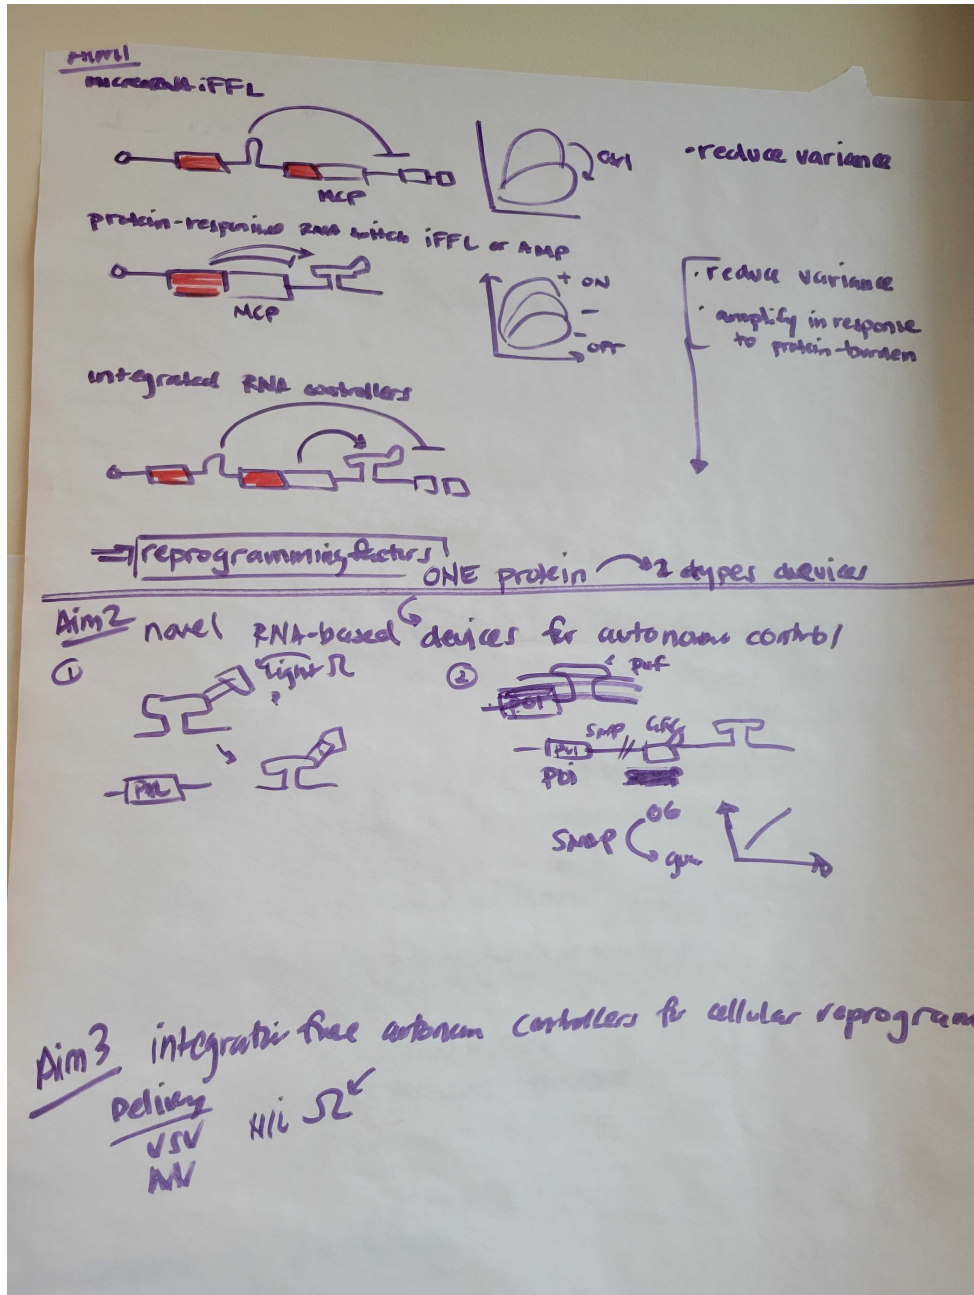 Aim 1
microRNA iFFL
ctrl
• reduce variance
MCP
protein-responsive RNA switch iFFL or AMP
MCP
+ ON
-
- OFF
• reduce variance
• amplify in response
to protein-burden
integrated RNA controllers
⇒ reprogramming factors
ONE protein → 2 types devices
Aim 2 novel RNA-based devices for autonom control
① light Ω
?
② PuF
POI
SMP
POI
SMAP OG
Aim 3 integratin free autonom controllers for cellular reprogram
Delivery
VSV
AAV
Hi Ω